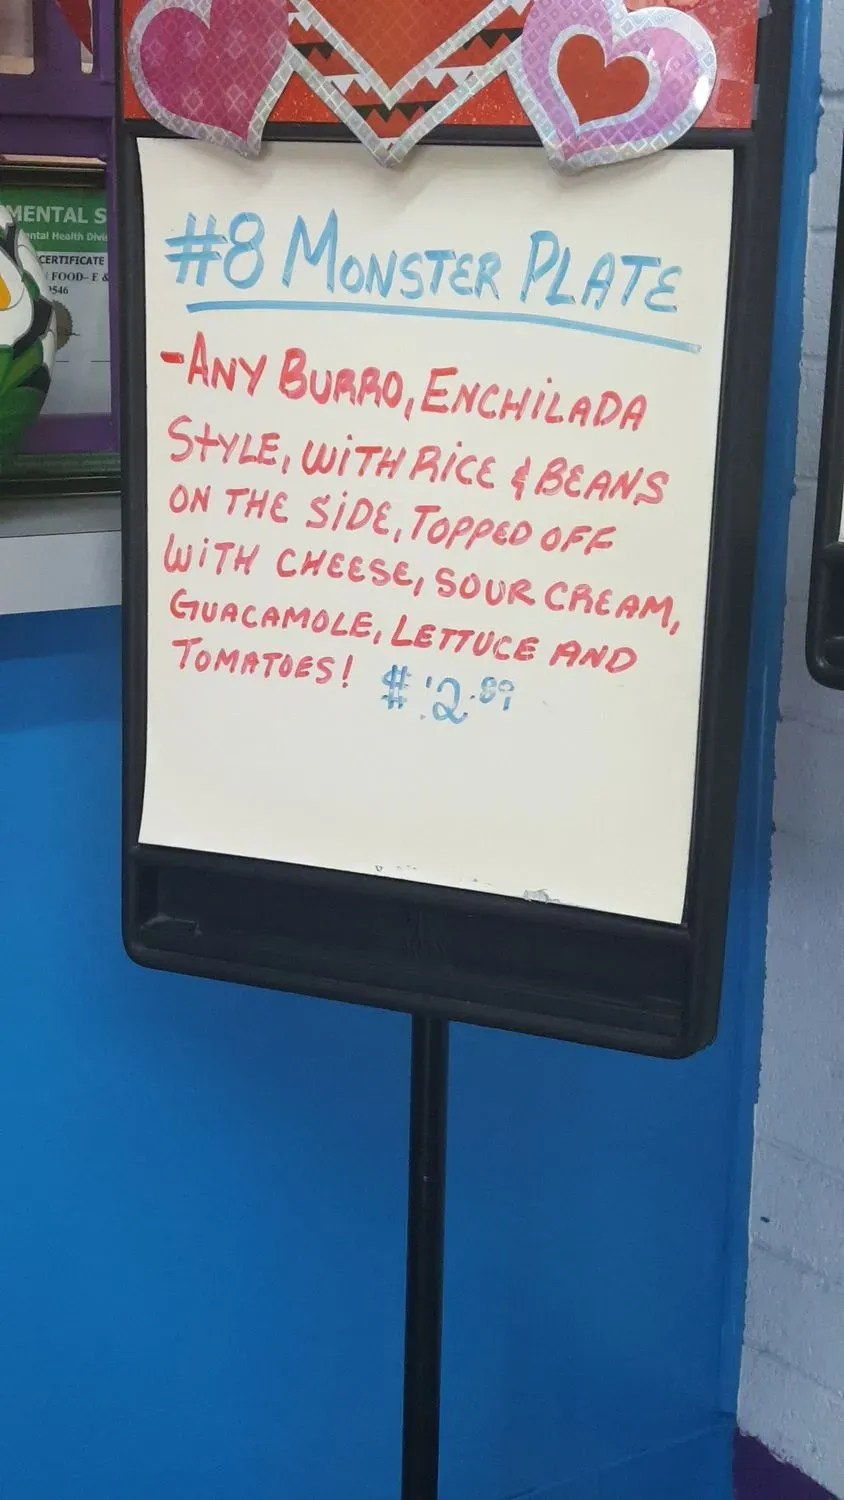 MENTAL S
ental Health Divi
CERTIFICATE
FOOD- E &
546
#8 MONSTER PLATE
-ANY BURRO, ENCHiLADA
STYLE, WiTH RiCE & BEANS
ON THE SiDE, TOPPED OFF
WiTH CHEESE, SOUR CREAM,
GUACAMOLE, LETTUCE AND
TOMATOES! $12.89